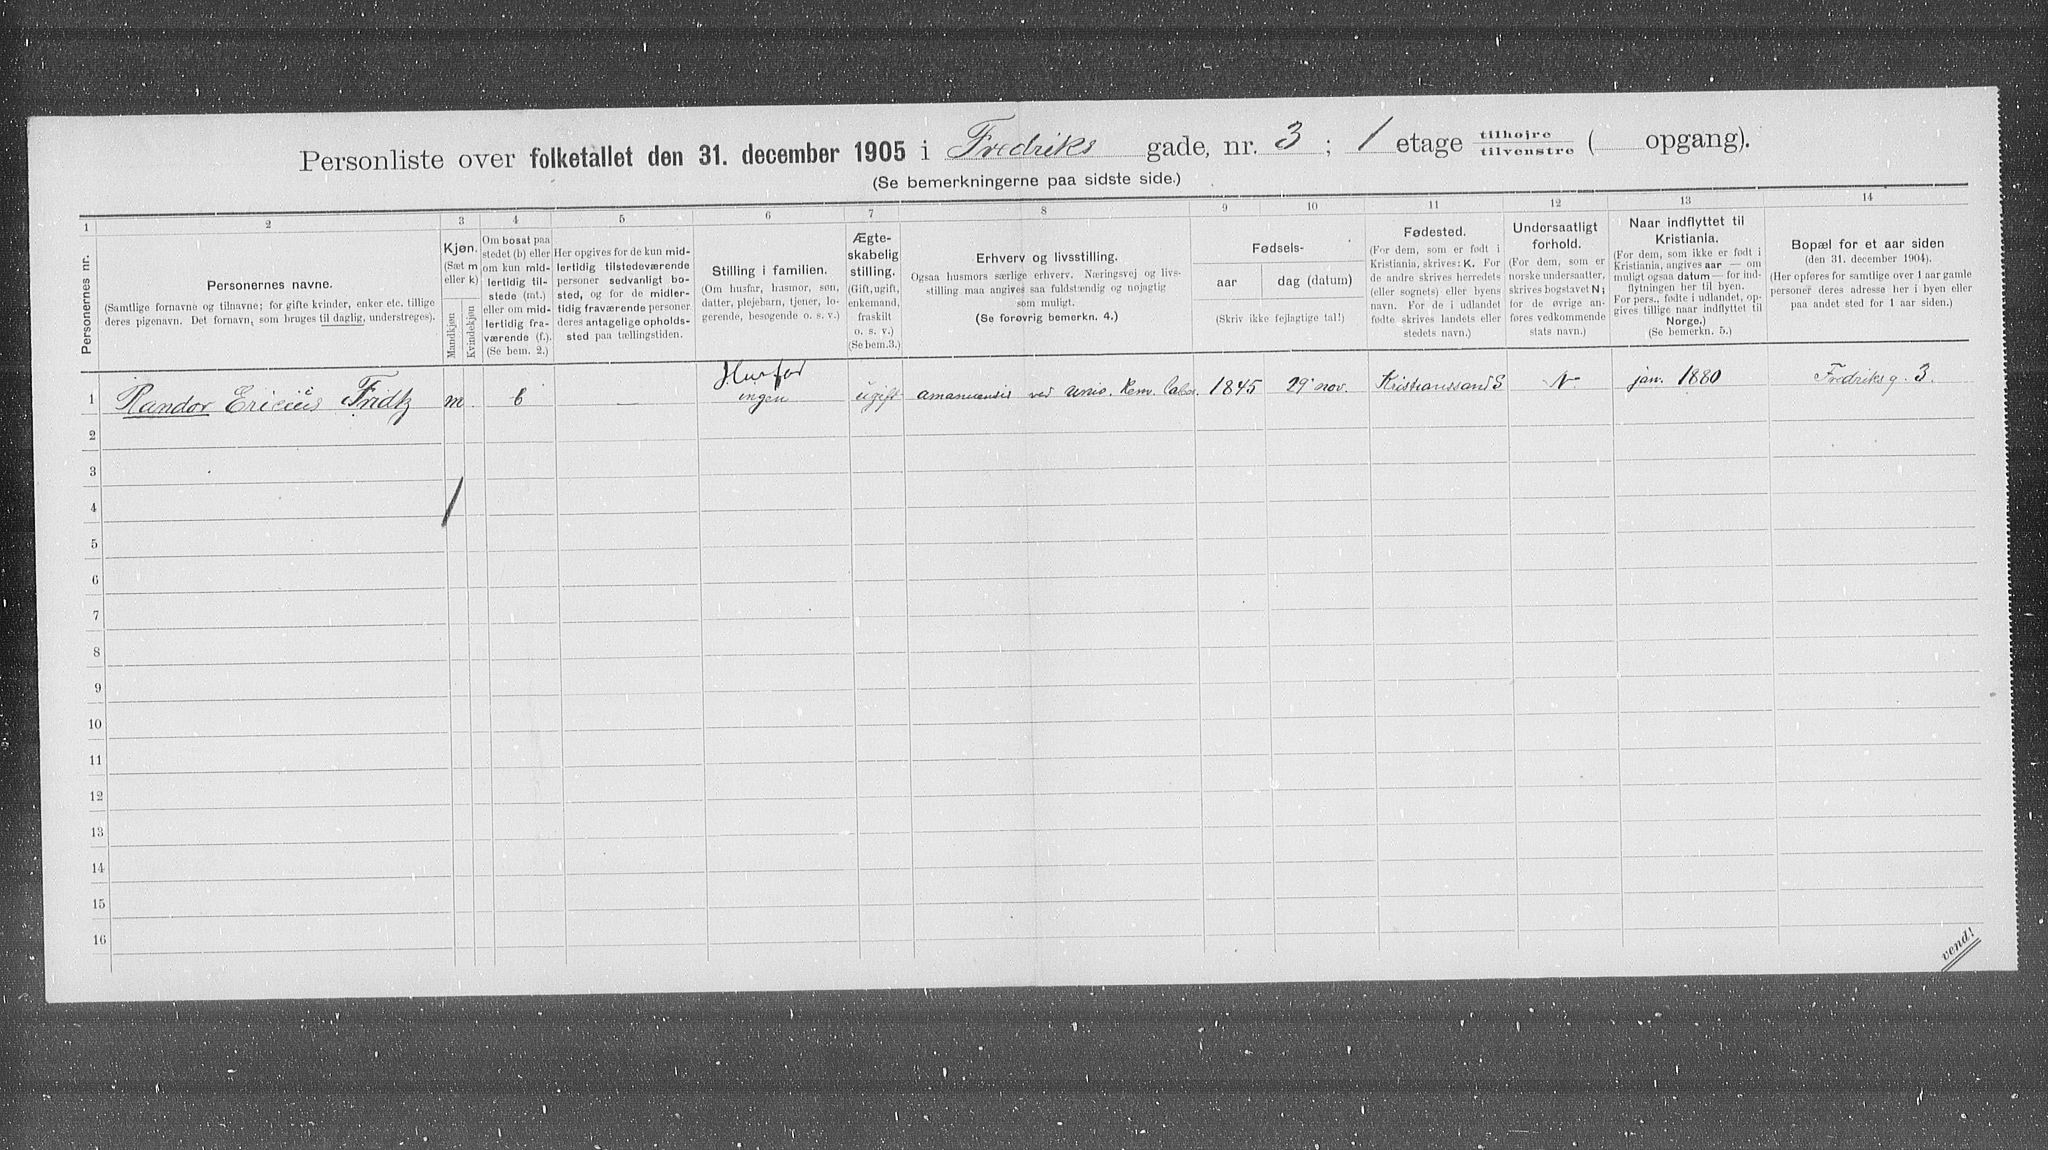 Personliste over folketallet den 31. december 1905 i Fredriks gade, nr. 3 ; 1 etage tilhøjre tilvenstre ( opgang).
(Se bemerkningerne paa sidste side.)
1 2 3 4 5 6 7 8 9 10 11 12 13 14
Personernes nr.
Personernes navne.
(Samtlige fornavne og tilnavne; for gifte kvinder, enker etc. tillige
deres pigenavn. Det fornavn, som bruges til daglig, understreges).
Kjøn.
(Sæt m
eller k)
Mandkjøn
Kvindekjøn
Om bosat paa
stedet (b) eller
om kun mid-
lertidig til-
stede (mt.)
eller om mid-
lertidig fra-
værende (f.).
(Se bem. 2.)
Her opgives for de kun mid-
lertidig tilstedeværende
personer sedvanligt bo-
sted, og for de midler-
tidig fraværende personer
deres antagelige opholds-
sted paa tællingstiden.
Stilling i familien.
(Om husfar, husmor, søn,
datter, plejebarn, tjener, lo-
gerende, besøgende o. s. v.)
Ægte-
skabelig
stilling.
(Gift, ugift,
enkemand,
fraskilt
o. s. v.)
(Se bem.3.)
Erhverv og livsstilling.
Ogsaa husmors særlige erhverv. Næringsvej og livs-
stilling maa angives saa fuldstændig og nøjagtig
som muligt.
(Se forøvrig bemerkn. 4.)
Fødsels-
aar
dag (datum)
(Skriv ikke fejlagtige tal!)
Fødested.
(For dem, som er født i
Kristiania, skrives: K. For
de andre skrives herredets
(eller sognets) eller byens
navn. For de i udlandet
fødte skrives landets eller
stedets navn.)
Undersaatligt
forhold.
(For dem, som er
norske undersaatter,
skrives bogstavet N;
for de øvrige an-
føres vedkommende
stats navn.)
Naar indflyttet til
Kristiania.
(For dem, som ikke er født i
Kristiania, angives aar — om
muligt ogsaa datum — for ind-
flytningen her til byen.
For pers., fødte i udlandet, op-
gives tillige naar indflyttet til
Norge.)
(Se bemerkn. 5.)
Bopæl for et aar siden
(den 31. december 1904).
(Her opføres for samtlige over 1 aar gamle
personer deres adresse her i byen eller
paa andet sted for 1 aar siden.)
Husfar
1 Randor Ericius Fridtz m b — ingen ugift amanuensis ved univ. kem. labor. 1845 29 nov. Kristianssand S N jan. 1880 Fredriks g. 3.
2
3
4
/
5
6
7
8
9
10
11
12
13
14
15
16
vend!